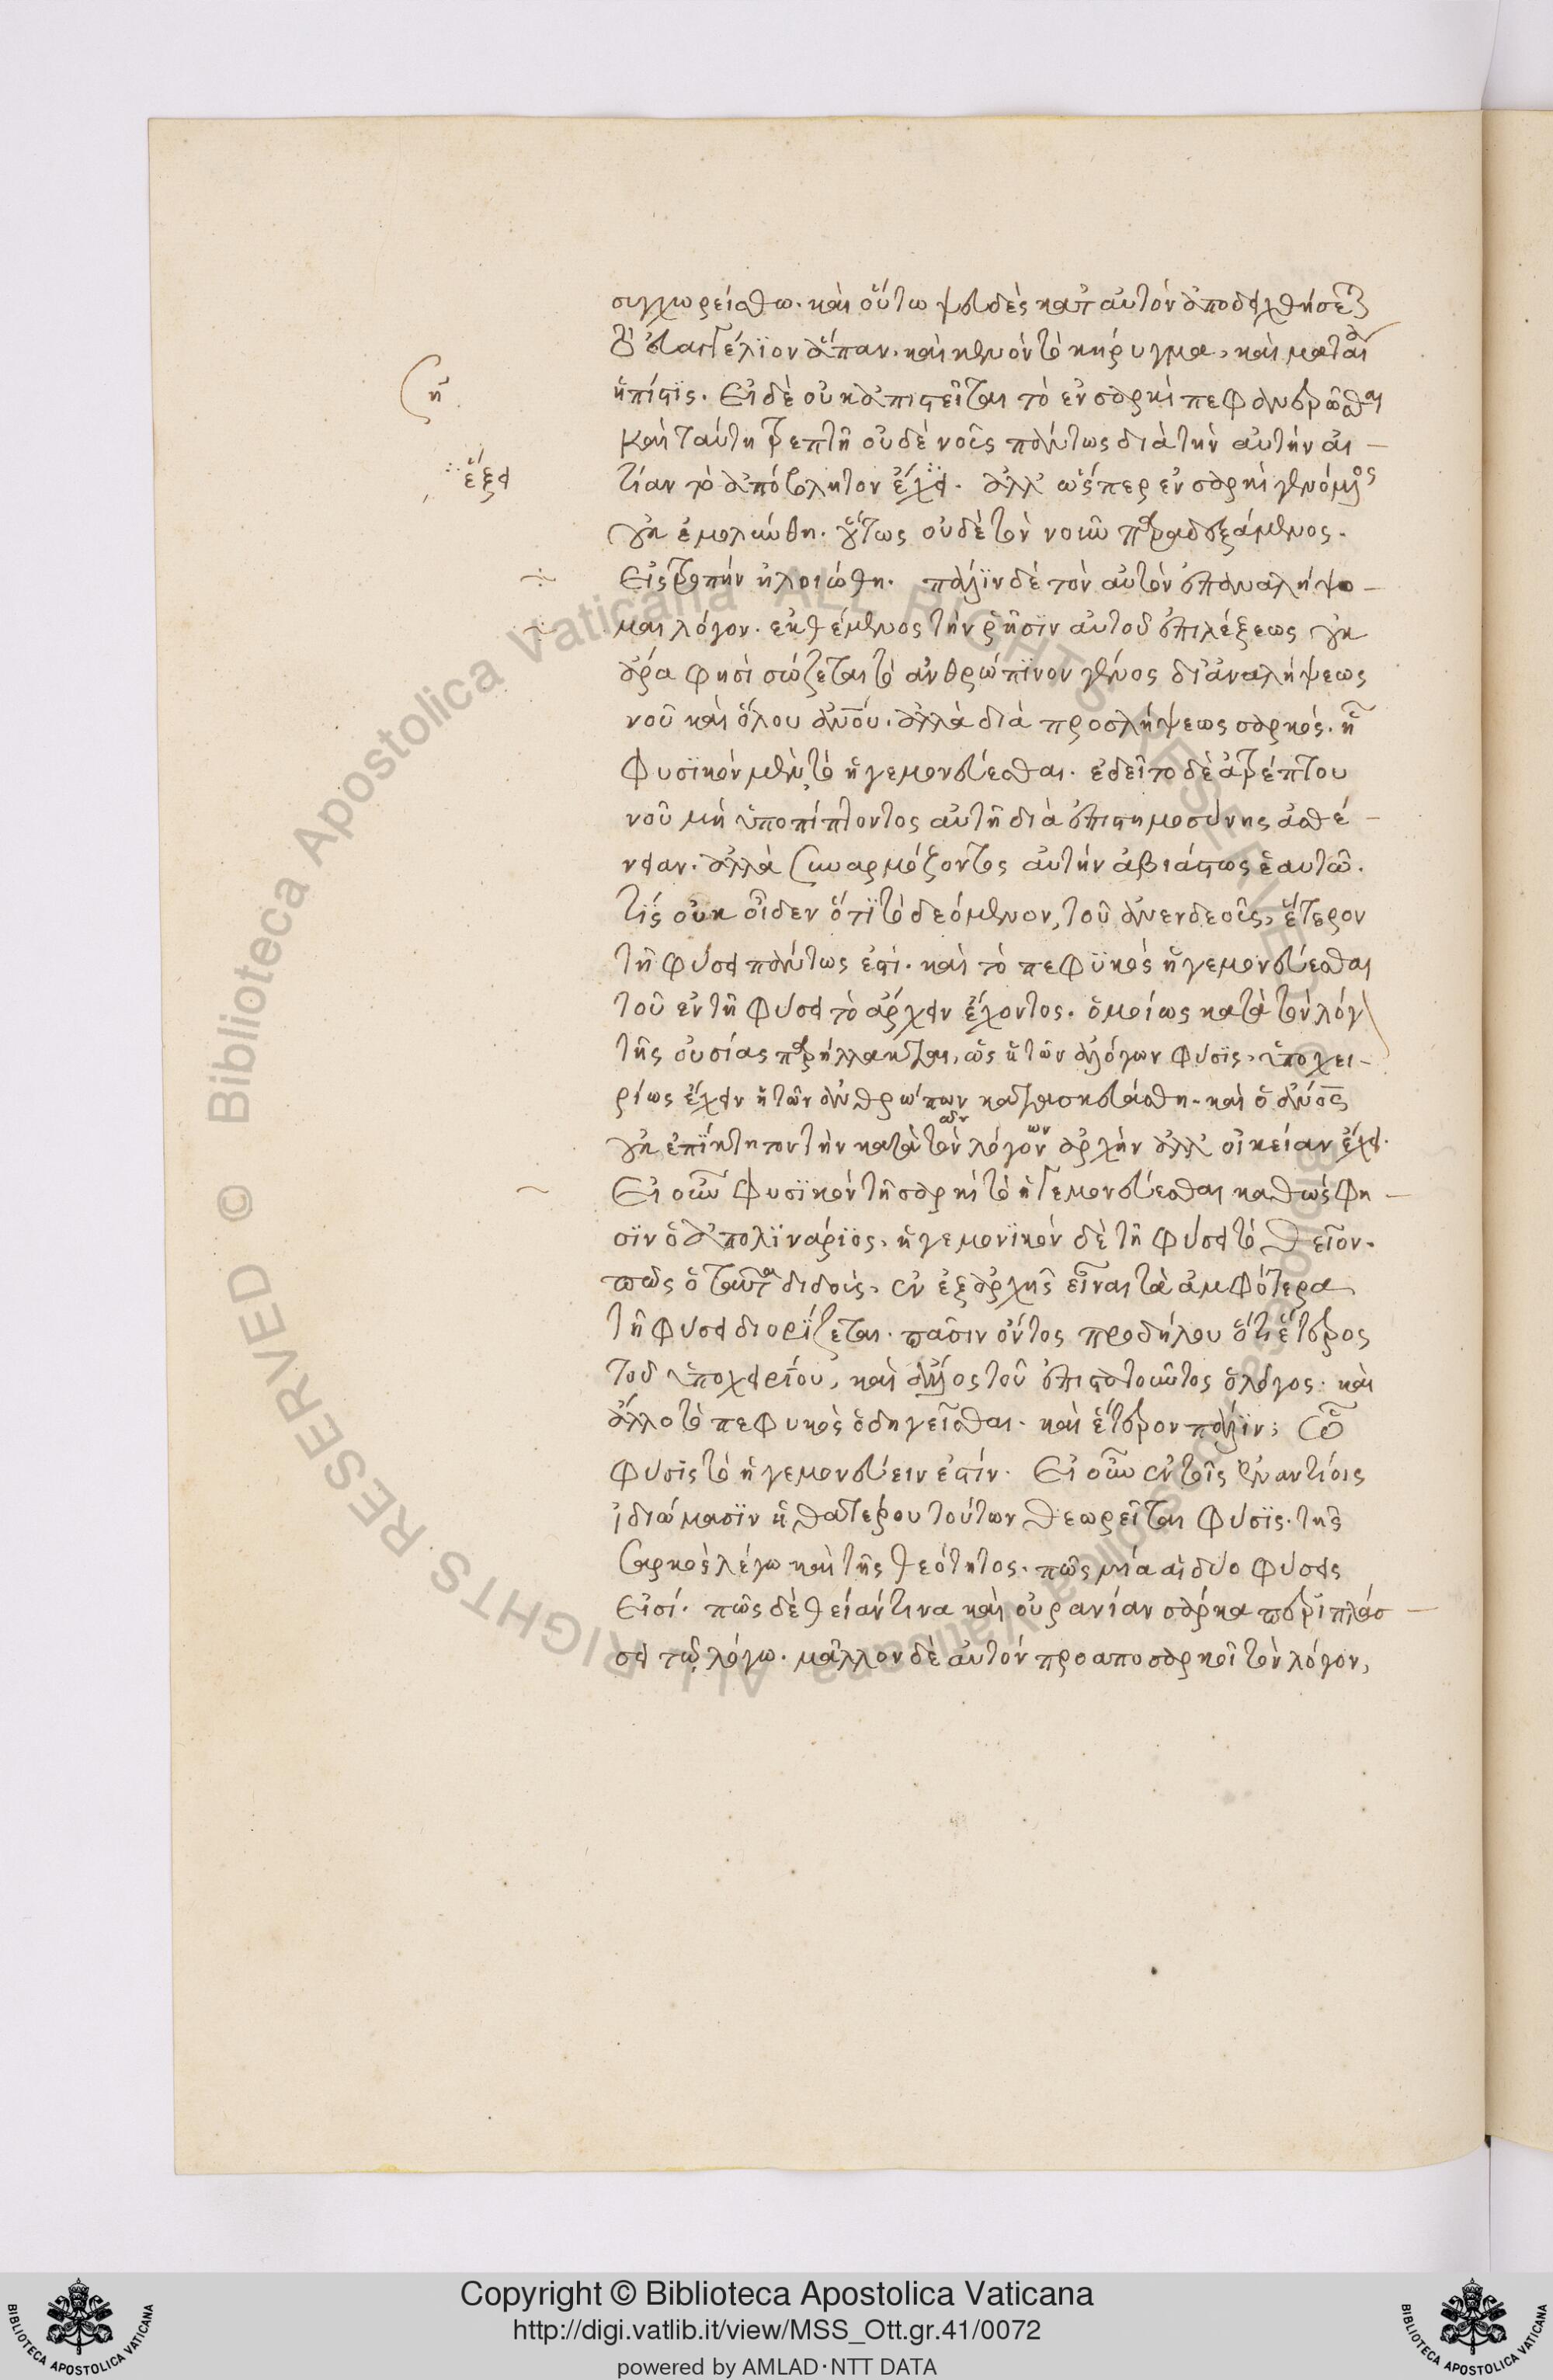 συγχωρείσθω. καὶ οὕτω ψευδὲς κατ' αὐτὸν ἀποδειχθήσεται
τὸ εὐαγγέλϊον ἅπαν. καὶ κενὸν τὸ κήρυγμα, καὶ ματαία
ἡ πίστϊς. Εἰ δὲ οὐκ ἀπιστεῖται τὸ ἐν σαρκὶ πεφανερῶσθαι
ἦ
κἂν ταύτη τρεπτῆ οὐδὲ νοῦς πάντως διὰ τὴν αὐτὴν αἰ-
ἕξει
τίαν τὸ ἀπόβλητον ἔχει. ἀλλ' ὥσπερ ἐν σαρκὶ γενόμενος
οὐκ ἐμολύνθη. οὕτως οὐδὲ τὸν νοῦν παραδεξάμενος.
Εἰς τροπὴν ἠλοιώθη. πάλϊν δὲ τὸν αὐτὸν ἐπαναλήψο-
μαι λόγον. ἐκθέμενος τὴν ῥῆσϊν αὐτοῦ ἐπιλέξεως οὐκ
ἄρα φησὶ σώζεται τὸ ἀνθρώπϊνον γένος δι' ἀναλήψεως
νοῦ καὶ ὅλου ἀνου. ἀλλὰ διὰ προσλήψεως σαρκός. ἧ
Φυσϊκὸν μὲν τὸ ἡγεμονεύεσθαι. ἐδεῖτο δὲ ἀτρέπτου
νοῦ μὴ ὑποπίπτοντος αὐτῆ διὰ ἐπιστημοσύνης ἀσθέ-
νειαν. ἀλλὰ συναρμόζοντος αὐτὴν ἀβιάστως ἑαυτῶ.
τίς οὐκ οἶδεν ὅτϊ τὸ δεόμενον, τοῦ ἀνενδεοῦς, ἕτερον
τῆ φύσει πάντως ἐστί. καὶ τὸ πεφϋκὸς ἡγεμονεύεσθαι
τοῦ ἐν τῆ φύσει τὸ ἄρχειν ἔχοντος. ὁμοίως κατὰ τὸν λόγον
τῆς οὐσίας παρήλλακται, ὡς ἡ τῶν ἀλόγων φύσϊς, ὑποχει-
ρίως ἔχειν ἡ τῶν ἀνθρώπων κατεσκευάσθη. καὶ ὁ ἀνος
οὐκ ἐπΐκτητον τὴν κατὰ τὸν λόγον ἀρχὴν ἀλλ' οἰκείαν ἔχει.
Εἰ οὖν Φυσϊκὸν τῆ σαρκὶ τὸ ἡγεμονεύεσθαι καθώς φη-
σϊν ὁ ἀπολϊνάρϊος, ἡγεμονϊκὸν δὲ τῆ φύσει τὸ θεῖον.
πῶς ὁ ταῦτα διδοὺς, ἓν ἐξ ἀρχῆς εἶναι τὰ ἀμφότερα
τῆ φύσει διορίζεται. πᾶσιν ὄντος προδήλου ὅτι ἕτερος
τοῦ ὑποχειρίου, καὶ ἄλλος τοῦ ἐπιστατοῦντος ὁ λόγος. καὶ
ἄλλο τὸ πεφυκὸς ὁδηγεῖσθαι. καὶ ἕτερον πάλϊν, οὗ
φύσϊς τὸ ἡγεμονεύειν ἐστίν. Εἰ οὖν ἐν τοῖς ἐναντίοις
ἰδιώμασϊν ἡ θατέρου τούτων θεωρεῖται φύσϊς. τῆς
σαρκὸς λέγω καὶ τῆς θεότητος. πῶς μία αἱ δύο φύσεις
εἰσί. πῶς δὲ θείαν τινα καὶ οὐρανίαν σάρκα περϊπλάσ-
σει τῶ λόγω. μᾶλλον δὲ αὐτὸν προαποσαρκοῖ τὸν λόγον,
Copyright © Biblioteca Apostolica Vaticana
http://digi.vatlib.it/view/MSS_Ott.gr.41/0072
powered by AMLAD·NTT DATA